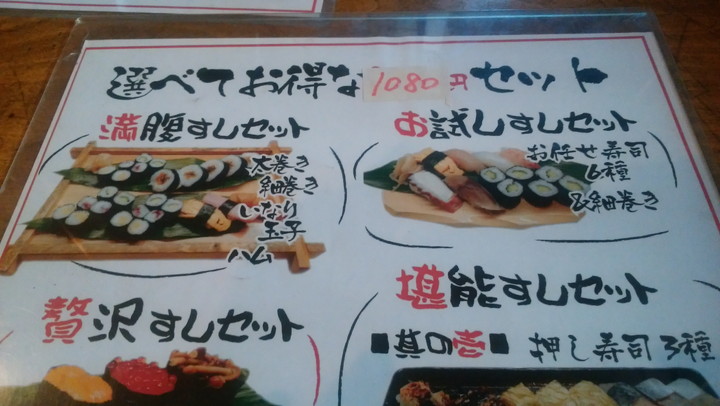 選べてお得な1080円セット
満腹すしセット
太巻き
細巻き
いなり
玉子
ハム
お試しすしセット
お任せ寿司
6種
&細巻き
贅沢すしセット
堪能すしセット
■其の壱■ 押し寿司3種